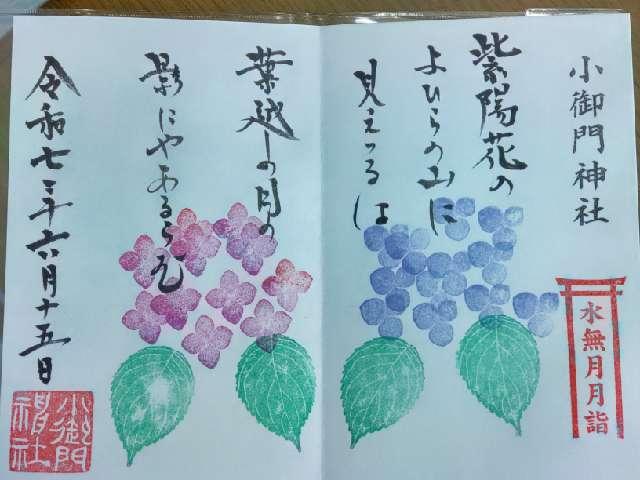 小御門神社
水無月月詣
紫陽花の
よひらの山に
見えつるは
葉越しの月の
影にやあるらむ
令和七年六月十五日
小御門神社